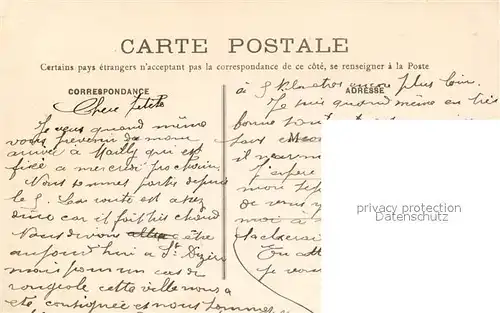 CARTE POSTALE
Certains pays étrangers n'acceptant pas la correspondance de ce côté, se renseigner à la Poste
CORRESPONDANCE
ADRESSE
Chère petite
Je veux quand même
vous prévenir de mon
arrivée à Mailly qui est
fixée a mercredi prochain.
Nous sommes partis depuis
le 5. La route est assez
dure car il fait très chaud
Nous devions être
aujourd'hui a St Dizier
mais pour un cas de
rougeole cette ville nous a
été consignée et nous sommes
à 5 Kilometres encore plus loin.
Je suis quand même en très
bonne
J'espère
mon
de vous
moi à
Je vous
privacy protection
Datenschutz